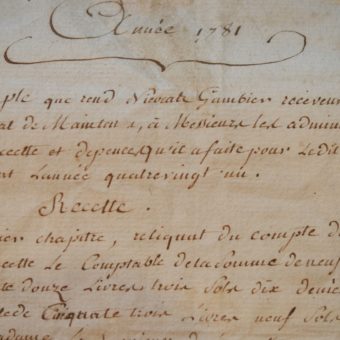 Année 1781
ple que rend Nicolas Gambier receveur
at de Mainton, à Messieurs les admini
ecette et depence qu'il a faite pour ledit
nt l'année quatrevingt un.
Recette.
ier chapitre, reliquat du compte de
ecette le Comptable de la somme de neuf
te douze Livres trois Sols dix denie
de Cinquante trois Livres neuf Sols